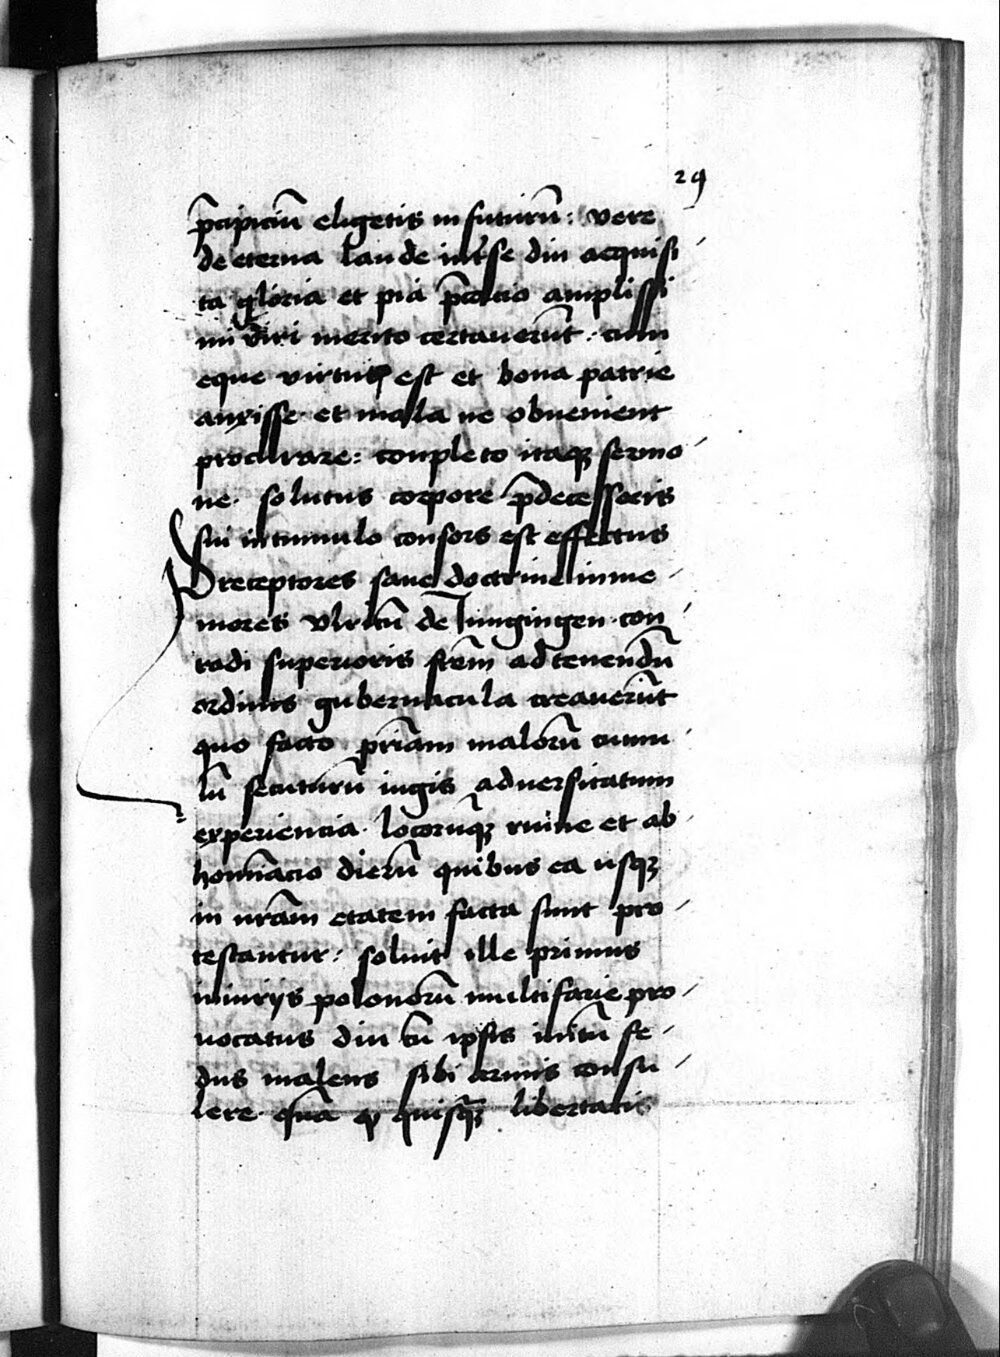 29
p̄cipiciū eligetis in futurū: vere
de eterna laude int̄ se diu acquisi
ta gloria et pia p̄catio amplissi
mi viri merito certauerūt. cum
eque virtutꝭ est et bona patrie
auxisse et mala ne obuenient
procurare: conpleto itaqꝫ sermo
ne. solutus corpore p̄decessoris
sui in tumulo consors est effectus
Preceptores sane doctrine inme
mores Vlricū de Jungingen con
radi superioris frēm ad tenendū
ordinis gubernacula creauerūt
quo facto p̄riam malorū cumu
lū secuturū iugis aduersitatum
experiencia. locorūqꝫ ruine et ab
hominacio dierū quibus ea usqꝫ
in nrām etatem facta sunt pro
testantur: soluit ille primus
iniurijs polonorū multifarie pro
uocatus diu cū ipsis initū fe
dus malens sibi armis consu
lere qm̄ quisqꝫ libertatis